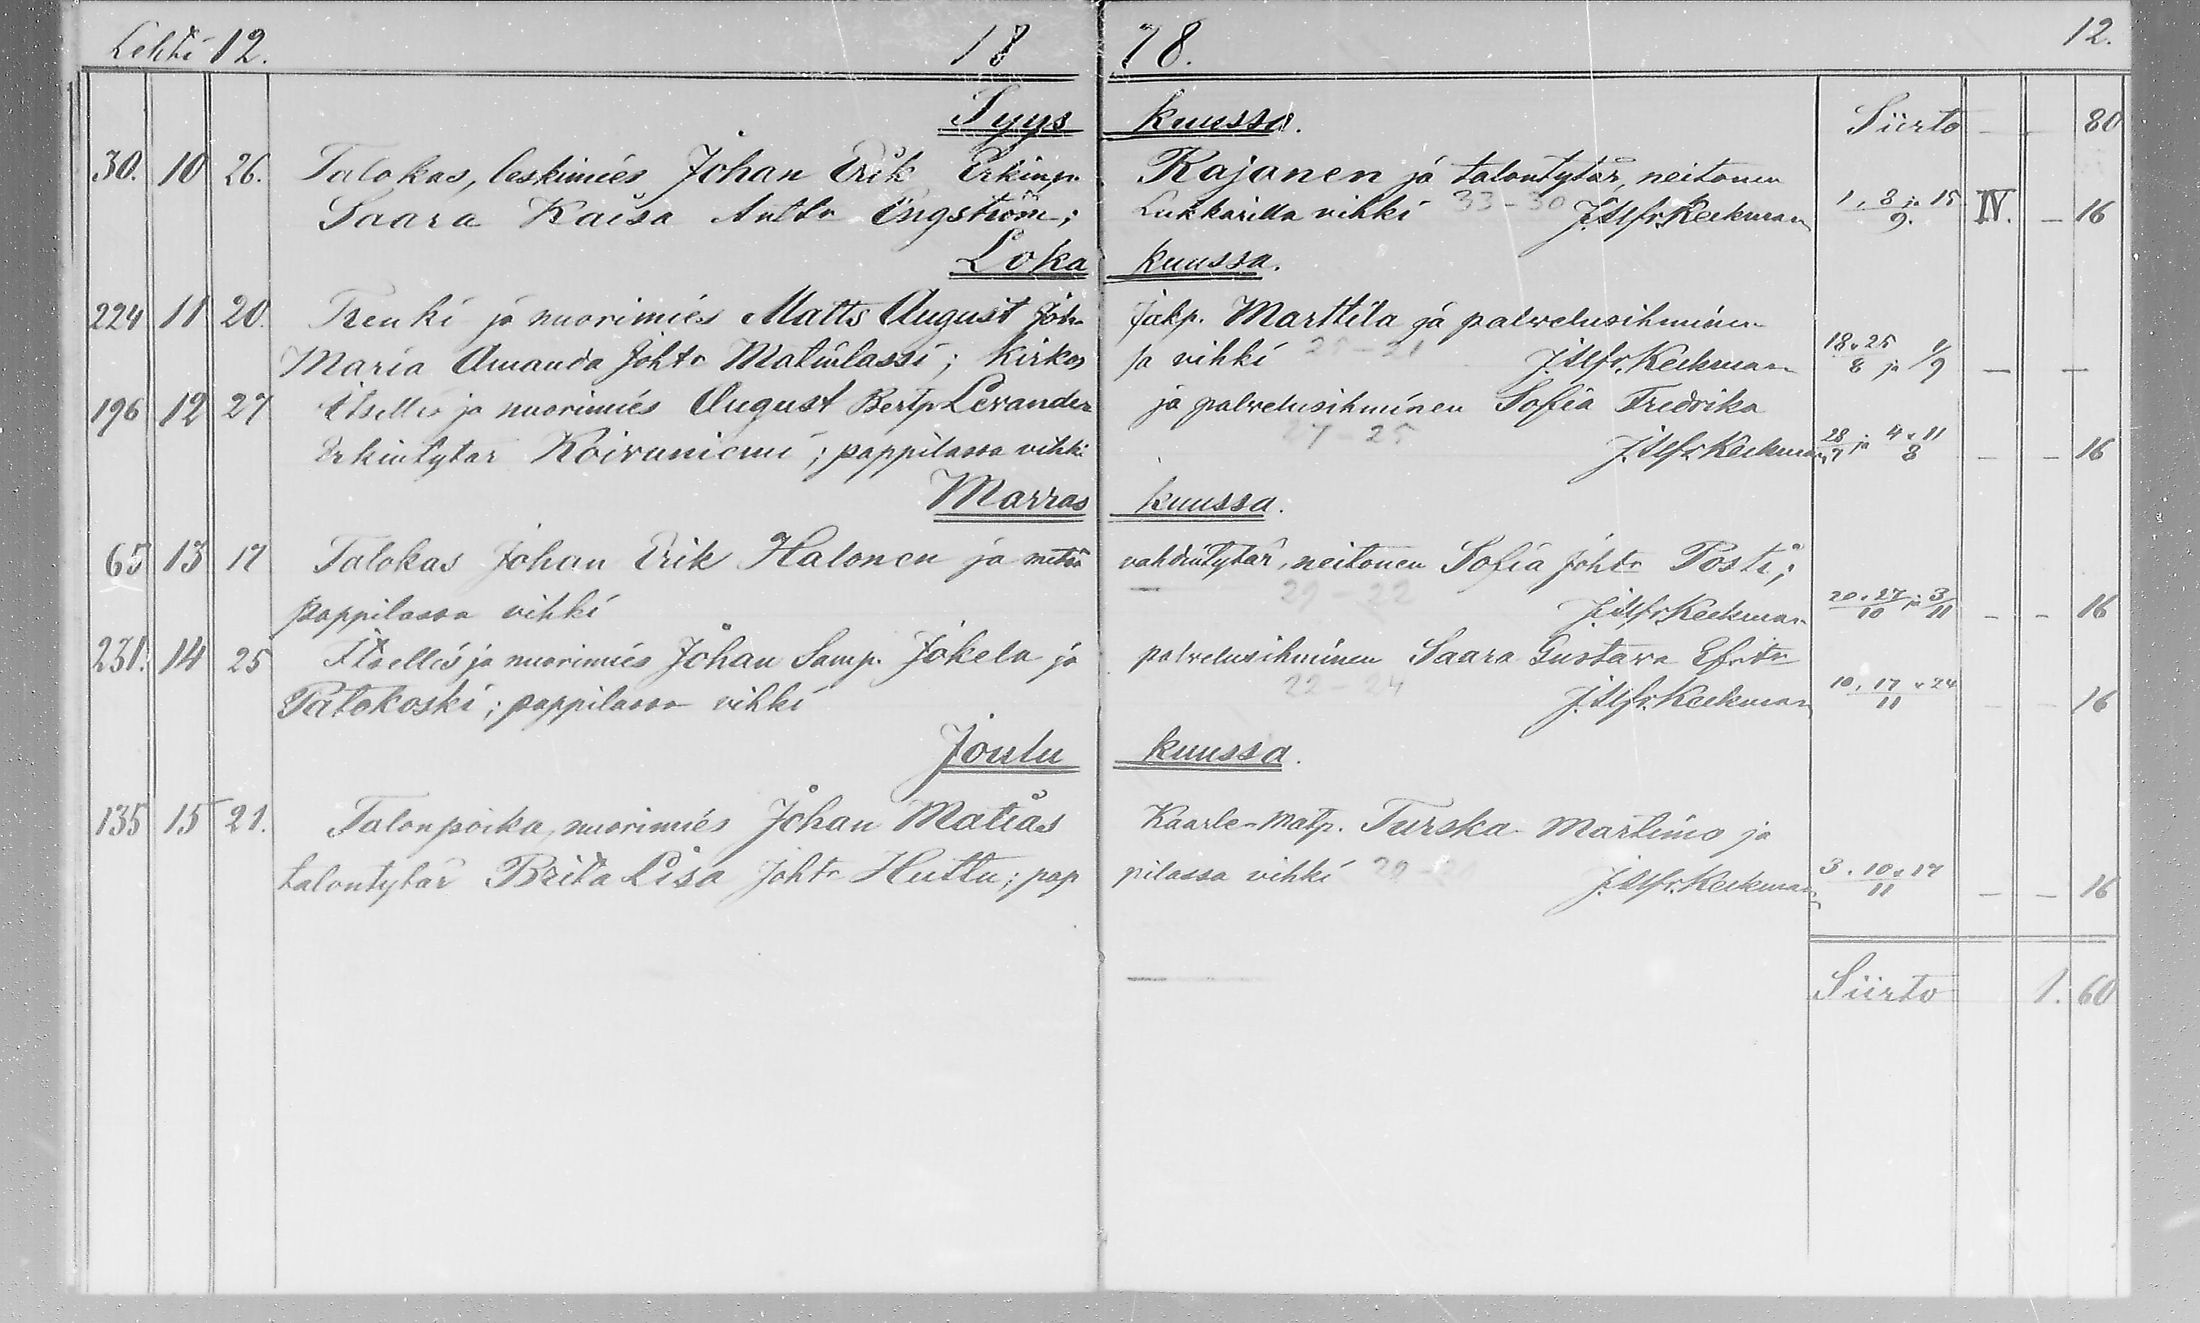 Lehti 12. 18 78. 12.
Syys kuussa. Siirto — — 80
30. 10 26. Talokas, leskimies Johan Erik Erkinp. Kajanen ja talontytär, neitonen
Saara Kaisa Antt: Engström; Lukkarilla vihki 33-30 J. Alfr. Keckman 1, 8 ja 15/9. IV. — 16
Loka kuussa.
224 11 20. Renki ja nuorimies Matts August Joh. Jakp. Marttila ja palvelusihminen
Maria Amanda Joht: Matinlassi; kirkos sa vihki J. Alfr. Keckman 18, 25/8 ja 1/9 — —
196 12 27 Itsellis ja nuorimies August Bertp. Levander ja palvelusihminen Sofia Fredrika
Erkintytär Koivuniemi; pappilassa vihki 27-25 J. Alfr. Keckman 28/7 ja 4, 11/8 — — 16
Marras kuussa.
65 13 17 Talokas Johan Erik Halonen ja metsä vahdintytär, neitonen Sofia Joht: Posti;
pappilassa vihki — 29-22 J. Alfr. Keckman 20, 27/10 ja 3/11 — — 16
231. 14 25 Itsellis ja nuorimies Johan Samp. Jokela ja palvelusihminen Saara Gustava Efr:tr
Patokoski; pappilassa vihki 22-24 J. Alfr. Keckman 10, 17, 24/11 — — 16
Joulu kuussa.
135 15 21. Talonpoika, nuorimies Johan Matias Kaarle-Matp. Turska-Martimo ja
talontytär Brita Lisa Joht: Huttu; pap pilassa vihki J. Alfr. Keckman 3, 10, 17/11 — — 16
Siirto 1. 60